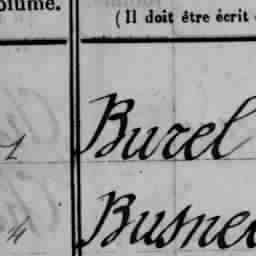 olume.
(Il doit être écrit
1 Burel
4 Busne